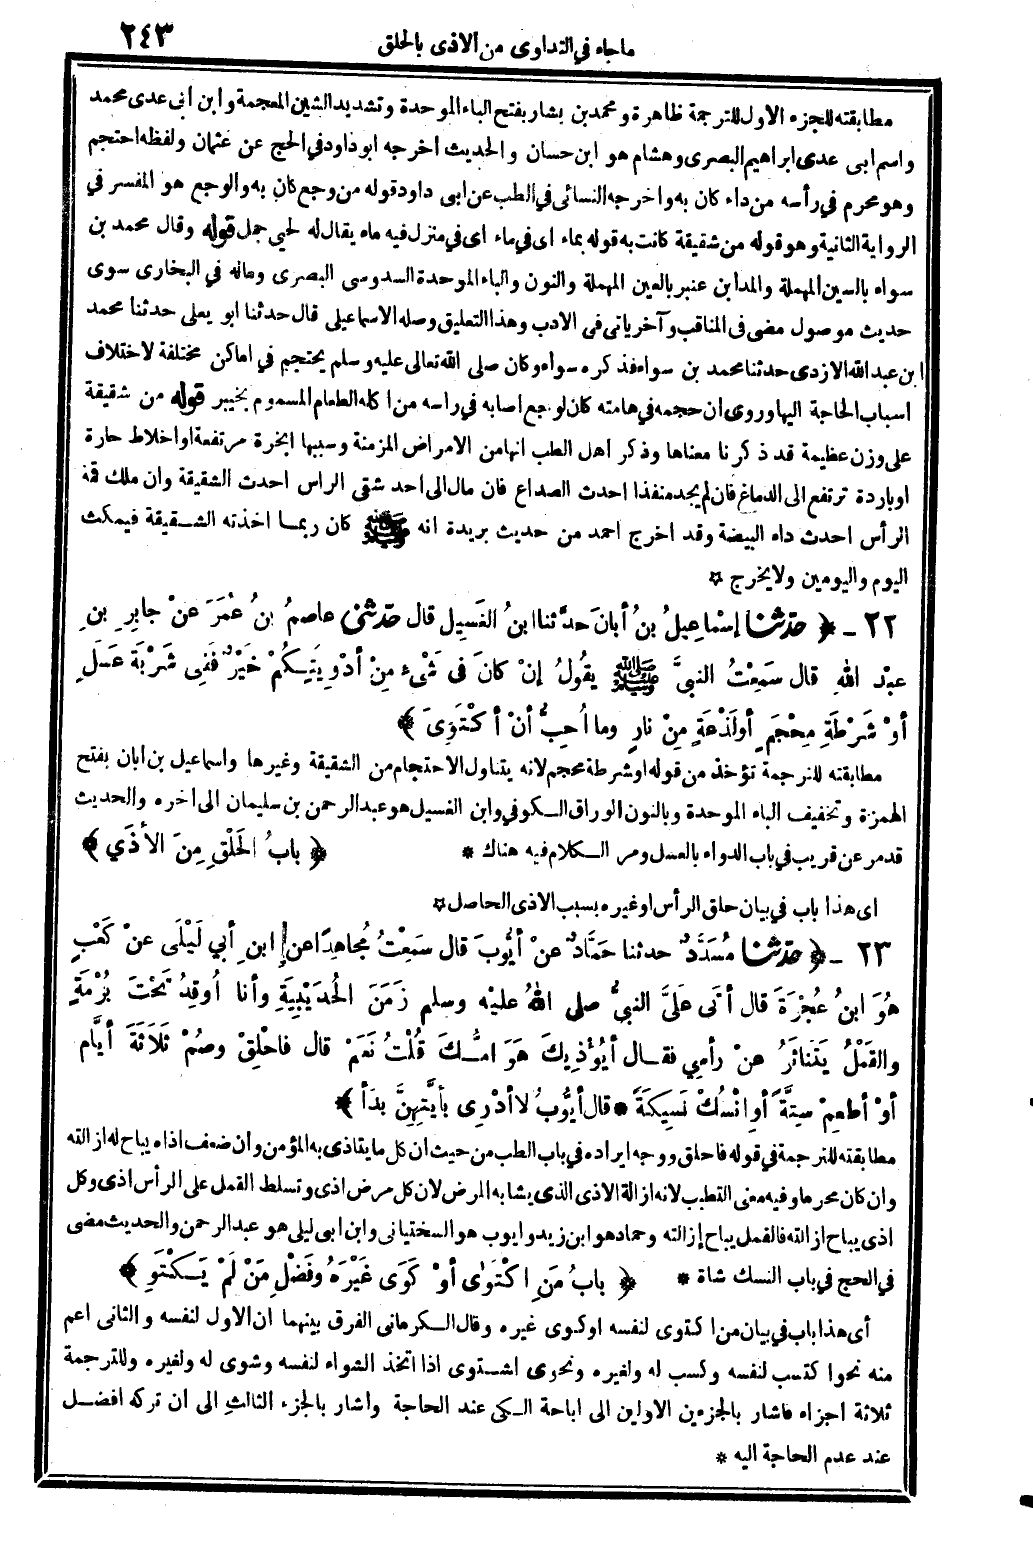 ما جاء في التداوى من الاذى بالحلق
٢٤٣
مطابقته للجزء الاول للترجمة ظاهرة ومحمد بن بشار بفتح الباء الموحدة وتشديد الشين المعجمة وابن أبى عدى محمد
واسم ابى عدى ابراهيم البصرى وهشام هو ابن حسان والحديث اخرجه ابو داود في الحج عن عثمان ولفظه احتجم
وهو محرم في رأسه من داء كان به واخرجه النسائى في الطب عن ابى داود قوله من وجع كان به والوجع هو المفسر في
الرواية الثانية وهو قوله من شقيقة كانت به قوله بماء اى في ماء اى في منزل فيه ماء يقال له لحيي جمل قوله وقال محمد بن
سواء بالسين المهملة والمد ابن عنبر بالعين المهملة والنون والباء الموحدة السدوسى البصرى وماله في البخارى سوى
حديث موصول مضى فى المناقب وآخر ياتى فى الادب وهذا التعليق وصله الاسماعيلى قال حدثنا ابو يعلى حدثنا محمد
ابن عبد الله الازدى حدثنا محمد بن سواء فذكره سواء وكان صلى الله تعالى عليه وسلم يحتجم في اماكن مختلفة لاختلاف
اسباب الحاجة اليها وروى ان حجمه في هامته كان لوجع اصابه في راسه من اكله الطعام المسموم بخيبر قوله من شقيقة
على وزن عظيمة قد ذكرنا معناها وذكر اهل الطب انها من الامراض المزمنة وسببها ابخرة مرتفعة او اخلاط حارة
او باردة ترتفع الى الدماغ فان لم يجد منفذا احدث الصداع فان مال الى احد شقى الراس احدث الشقيقة وان ملك قمة
الرأس احدث داء البيضة وقد اخرج احمد من حديث بريدة انه ﷺ كان ربما اخذته الشقيقة فيمكث
اليوم واليومين ولا يخرج ☆
٢٢ ـ ﴿ حدثنا إسْماعِيلُ بنُ أبانَ حدَّثنا ابنُ الغَسِيلِ قال حدثنى عاصِمُ بنُ عُمَرَ عنْ جابِرِ بنِ
عبْدِ اللهِ قال سَمِعْتُ النبيَّ ﷺ يقُولُ إنْ كانَ فى شَىْءٍ مِنْ أدْوِيَتِكُمْ خَيْرٌ فَفِى شَرْبَةِ عَسَلٍ
أوْ شَرْطَةِ مِحْجَمٍ أو لَذْعَةٍ مِنْ نارٍ وما أُحِبُّ أنْ أكْتَوِىَ ﴾
مطابقته للترجمة تؤخذ من قوله او شرطة محجم لانه يتناول الاحتجام من الشقيقة وغيرها واسماعيل بن ابان بفتح
الهمزة وتخفيف الباء الموحدة وبالنون الوراق الكوفي وابن الغسيل هو عبد الرحمن بن سليمان الى اخره والحديث
قد مر عن قريب في باب الدواء بالعسل ومر الكلام فيه هناك * ﴿ بابُ الحَلْقِ مِنَ الأذَي ﴾
اى هذا باب في بيان حلق الرأس او غيره بسبب الاذى الحاصل ☆
٢٣ ـ ﴿ حدثنا مُسَدَّدٌ حدثنا حَمَّادٌ عنْ أيُّوبَ قال سَمِعْتُ مُجاهِدًا عنِ ابنِ أبي لَيْلَى عنْ كَعْبٍ
هُوَ ابنُ عُجْرَةَ قال أتَى عَلَيَّ النبيُّ صلى اللهُ عليْه وسلم زَمَنَ الحُدَيْبِيَةِ وأنا أُوقِدُ تَحْتَ بُرْمَةٍ
والقَمْلُ يَتَناثَرُ عنْ رأسِي فقال أيُؤْذِيكَ هَوَامُّكَ قُلْتُ نَعَمْ قال فاحْلِقْ وصُمْ ثَلَاثَةَ أيَّامٍ
أوْ أطعِمْ سِتَّةً أوِ انْسُكْ نَسِيكَةً * قال أيُّوبُ لا أدْرِى بأيَّتِهِنَّ بدَأ ﴾
مطابقته للترجمة في قوله فاحلق ووجه ايراده في باب الطب من حيث ان كل ما يتاذى به المؤمن وان ضعف اذاه يباح له ازالته
وان كان محرما وفيه معنى التطبب لانه ازالة الاذى الذى يشابه المرض لان كل مرض اذى وتسلط القمل على الرأس اذى وكل
اذى يباح ازالته فالقمل يباح إزالته وحماد هو ابن زيد وايوب هو السختيانى وابن ابى ليلى هو عبد الرحمن والحديث مضى
في الحج في باب النسك شاة * ﴿ بابُ مَنِ اكْتَوَى أوْ كَوَى غَيْرَهُ وفَضْلِ مَنْ لَمْ يَكْتَوِ ﴾
أى هذا باب في بيان من اكتوى لنفسه او كوى غيره وقال الكرمانى الفرق بينهما ان الاول لنفسه والثانى اعم
منه نحوا كتسب لنفسه وكسب له ولغيره ونحوى اشتوى اذا اتخذ الشواء لنفسه وشوى له ولغيره وللترجمة
ثلاثة اجزاء فاشار بالجزءين الاولين الى اباحة الكى عند الحاجة واشار بالجزء الثالث الى ان تركه افضل
عند عدم الحاجة اليه *